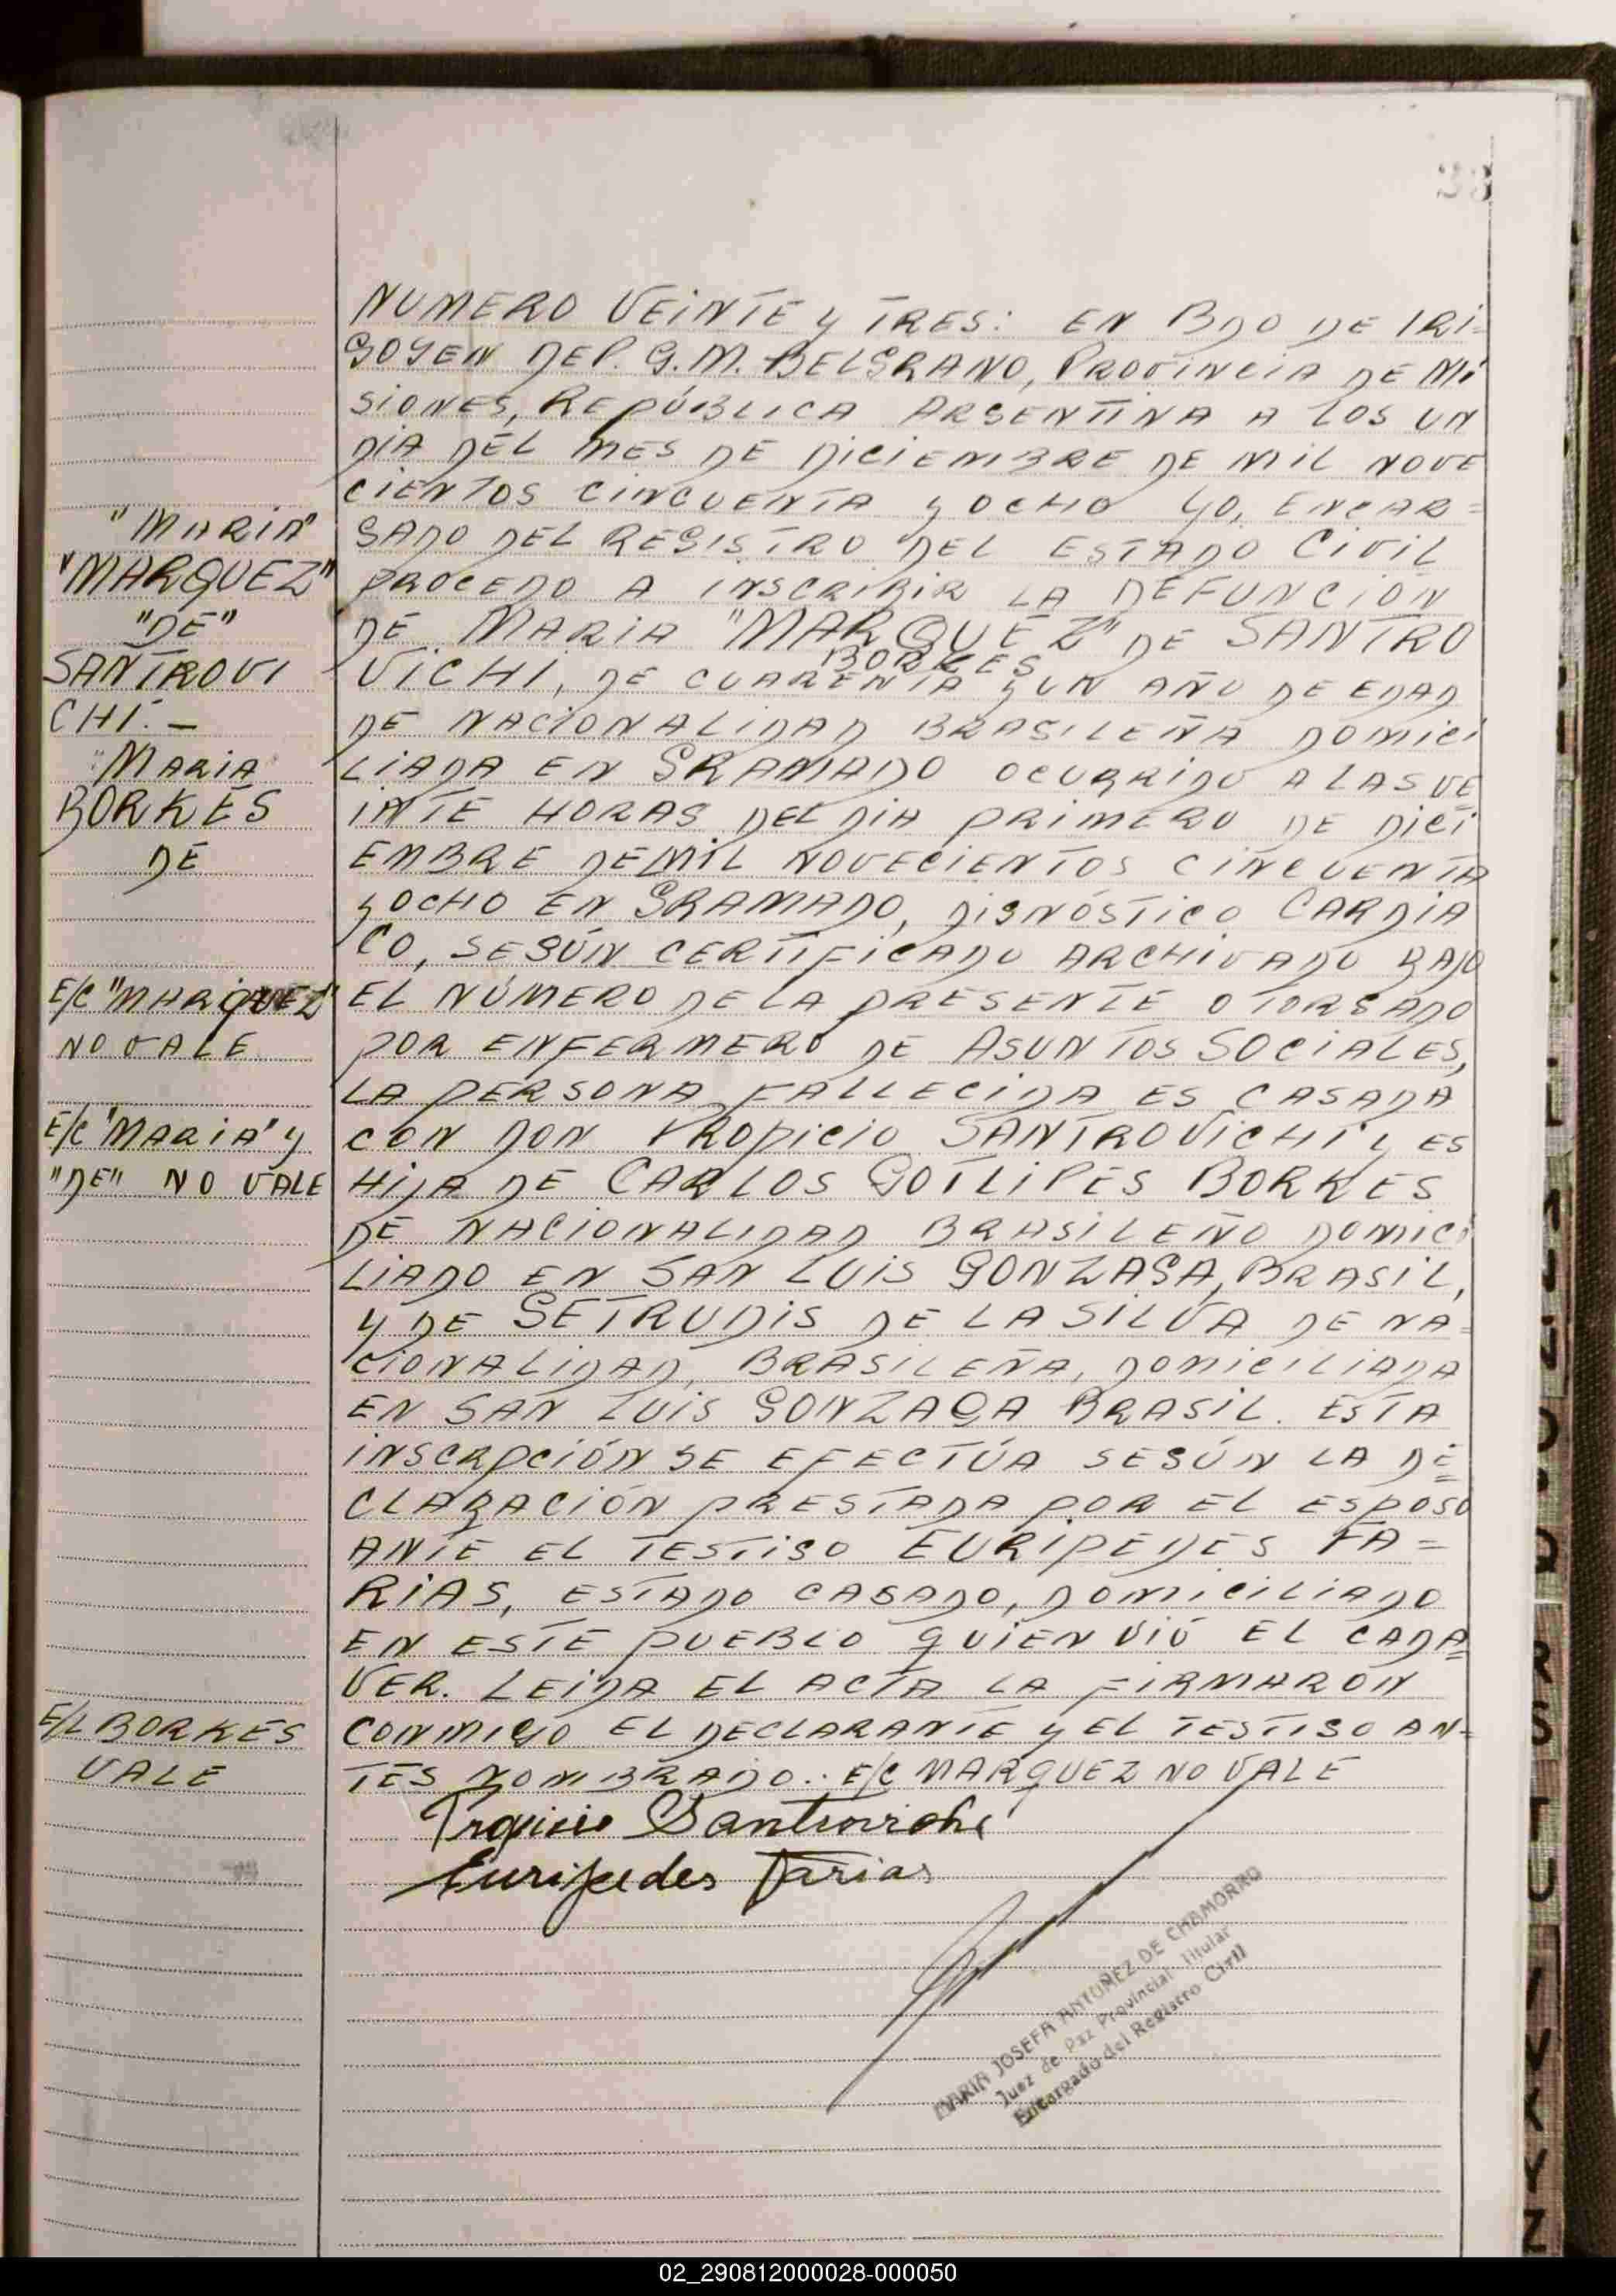 23
NUMERO VEINTE y TRES: EN BDO DE IRI-
GOYEN DEP. G.M. BELGRANO, PROVINCIA DE MI
SIONES, REPÚBLICA ARGENTINA A LOS UN
DÍA DEL MES DE DICIEMBRE DE MIL NOVE
CIENTOS CINCUENTA y OCHO YO, ENCAR=
GADO DEL REGISTRO DEL ESTADO CIVIL
PROCEDO A INSCRIBIR LA DEFUNCIÓN
DE MARIA "MARQUEZ" DE SANTRO
BORKES
VICHI, DE CUARENTA y UN AÑO DE EDAD
DE NACIONALIDAD BRASILEÑA DOMICI
LIADA EN GRAMADO OCURRIDO A LAS VE
INTE HORAS DEL DIA PRIMERO DE DICI
EMBRE DE MIL NOVECIENTOS CINCUENTA
y OCHO EN GRAMADO, DIGNÓSTICO CARDIA
CO, SEGÚN CERTIFICADO ARCHIVADO BAJO
EL NÚMERO DE LA PRESENTE OTORGADO
POR ENFERMERO DE ASUNTOS SOCIALES,
LA PERSONA FALLECIDA ES CASADA
CON DON PROPICIO SANTROVICHI y ES
HIJA DE CARLOS GOTLIPES BORKES
DE NACIONALIDAD BRASILEÑO DOMICI
LIADO EN SAN LUIS GONZAGA, BRASIL,
y DE GETRUDIS DE LA SILVA DE NA=
CIONALIDAD BRASILEÑA, DOMICILIADA
EN SAN LUIS GONZAGA BRASIL. ESTA
INSCRPCIÓN SE EFECTÚA SEGÚN LA DE=
CLARACIÓN PRESTADA POR EL ESPOSO
ANTE EL TESTIGO EURIPEDES FA=
RIAS, ESTADO CASADO, DOMICILIADO
EN ESTE PUEBLO QUIEN VIÓ EL CADA=
VER. LEIDA EL ACTA LA FIRMARON
CONMIGO EL DECLARANTE y EL TESTIGO AN-
TES NOMBRADO. E/C MARQUEZ NO VALE
Propicio Santrovichi
Euripedes Farias
MARIA JOSEFA ANTUÑEZ DE CHAMORRO
Juez de Paz Provincial Titular
Encargado del Registro Civil
"MARIA"
"MARQUEZ"
"DE"
SANTROVI
CHI. —
"MARIA
BORKES
DE
E/C "MARQUEZ"
NO VALE
E/C "MARIA" y
"DE" NO VALE
E/L BORKES
VALE
R
S
T
U
V
X
Y
Z
02_290812000028-000050